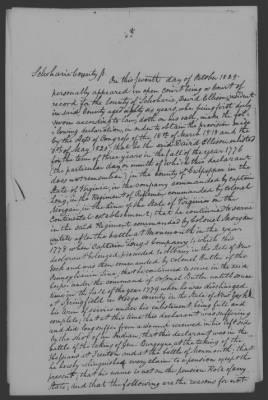 Schoharie County ss
On this seventh day of October 1829
personally appeared in open court being a Court of
record for the County of Schoharie, David Ellson, resident
in said County aged years, who being first duly
sworn according to law, doth on his oath, make the fol-
lowing declaration, in order to obtain the provision made
by the Acts of Congress of the 18th of March 1818 and the
1st of May 1820, that he the said David Ellson enlisted
for the term of three years in the fall of the year 1776
(the particular day or month of which this declarant
does not remember) in the County of Culpepper in the
State of Virginia, in the company commanded by Captain
Long, in the Regiment of Riflemen commanded by Colonel
Morgan, in the line of the State of Virginia on the
Continental establishment; that he continued to serve
in the said Regiment commanded by Colonel Morgan
until after the battle at Monmouth in the year
1778 when Captain Long's company to which this
declarant belonged, to Albany in the State of New
York and was then commanded by Colonel Butler of the
Pennsylvania line; that he continued to serve in the said
corps under the command of Colonel Butler until some
time in the of the year 1779 when he was discharged
at Springfield in Otsego County in the State of New York
his term of service under his enlistment being full and
complete; that at this time this declarant was suffering
and did long suffer from a wound received in his left side
by the shot of an Indian; that this declarant was in the
battle of the taking of Gen. Burgoyne, at the taking of the
Hessians at Trenton and at the battle of Monmouth; that
he hereby relinquishes every claim to a pension except the
present; that his name is not on the pension Roll of any
State; and that the following are the reasons for not